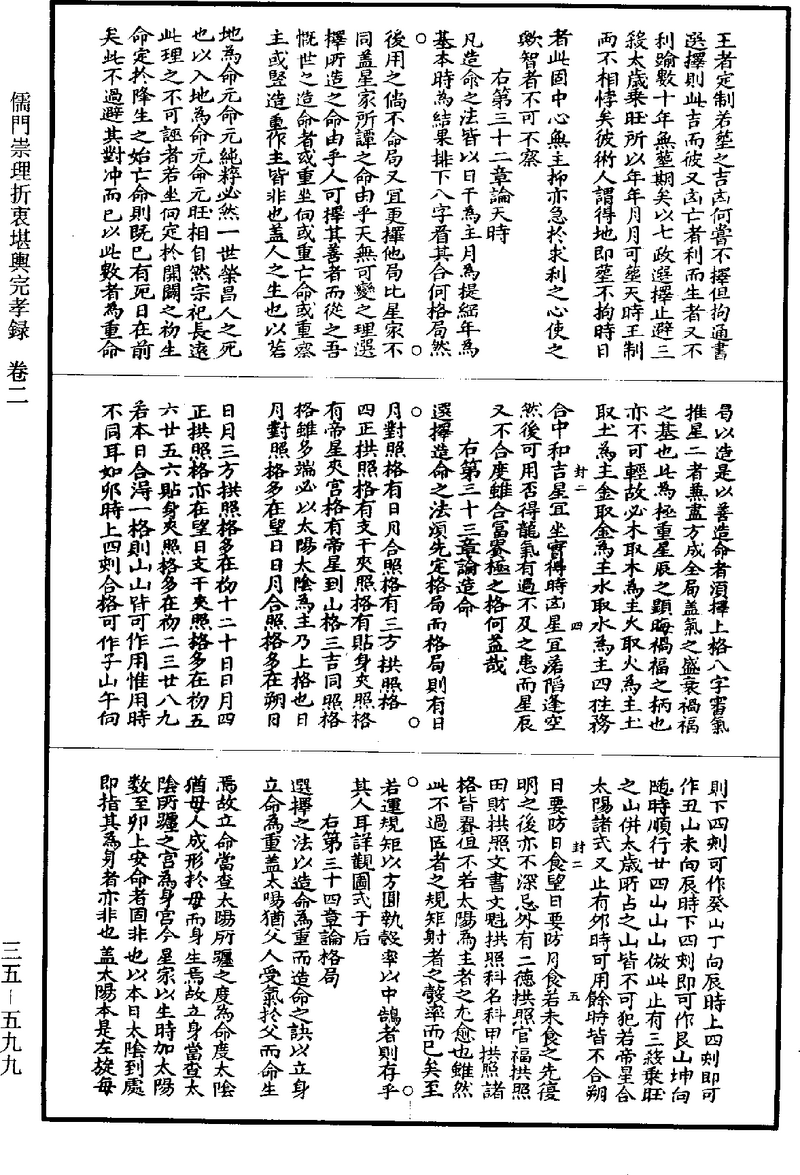 儒門崇理折衷堪輿完孝録　卷二
三五－五九九
王者定制若塟之吉凶何嘗不擇但拘通書
選擇則此吉而彼又凶亡者利而生者又不
利踰數十年無塟期矣以七政選擇止避三
殺太歲乗旺所以年年月月可塟天時王制
两不相悖矣彼術人謂得地即塟不拘時日
者此固中心無主抑亦急於求利之心使之
歟智者不可不察
右第三十二章論天時
凡造命之法皆以日干為主月為提綱年為
基本時為結果排下八字看其合何格局然
後用之倘不命局又宜更擇他局比星家不
同盖星家所譚之命由乎天無可變之理選
擇所造之命由乎人可擇其善者而從之吾
慨世之造命者或重坐向或重亡命或重祭
主或竪造重作主皆非也盖人之生也以若
地為命元命元純粹必然一世榮昌人之死
也以入地為命元命元旺相自然宗祀長遠
此理之不可誣者若坐向定於開闢之初生
命定於降生之始亡命則既已有死日在前
矣此不過避其對冲而已以此數者為重命
局以造是以善造命者須擇上格八字審氣
推星二者兼盡方成全局盖氣之盛衰禍福
之基也此為極重星辰之顯晦禍福之柄也
亦不可輕故必木取木為主火取火為主土
取土為主金取金為主水取水為主四柱務
合中和吉星宜坐實得時凶星宜落陷逢空
然後可用否得龍氣有過不及之患而星辰
又不合度雖合富貴極之格何益哉
右第三十三章論造命
選擇造命之法須先定格局而格局則有日
月對照格有日月合照格有三方拱照格
四正拱照格有支干夾照格有貼身夾照格
有帝星夾宫格有帝星到山格三吉同照格
格雖多端必以太陽太陰為主乃上格也日
月對照格多在望日日月合照格多在朔日
日月三方拱照格多在初十二十日日月四
正拱照格亦在望日支干夾照格多在初五
六廿五六貼身夾照格多在初二三廿八九
若本日合得一格則山山皆可作用惟用時
不同耳如卯時上四刻合格可作子山午向
則下四刻可作癸山丁向辰時上四刻即可
作丑山未向辰時下四刻即可作艮山坤向
随時順行廿四山山山倣此止有三殺乗旺
之山併太歲所占之山皆不可犯若帝星合
太陽諸式又止有夘時可用餘時皆不合朔
日要防日食望日要防月食若未食之先復
明之後亦不深忌外有二德拱照官福拱照
田財拱照文書文魁拱照科名科甲拱照諸
格皆畧但不若太陽為主者之尤愈也雖然
此不過匠者之規矩射者之彀率而已矣至
若運規矩以方圓執彀率以中鵠者則存乎
其人耳詳觀圖式于后
右第三十四章論格局
選擇之法以造命為重而造命之訣以立身
立命為重盖太陽猶父人受氣於父而命生
焉故立命當查太陽所躔之度為命度太陰
猶母人成形於母而身生焉故立身當查太
陰所躔之宫為身宫今星家以生時加太陽
數至卯上安命者固非也以本日太陰到處
即指其為身者亦非也盖太陽本是左旋每
封二
四
封二
五